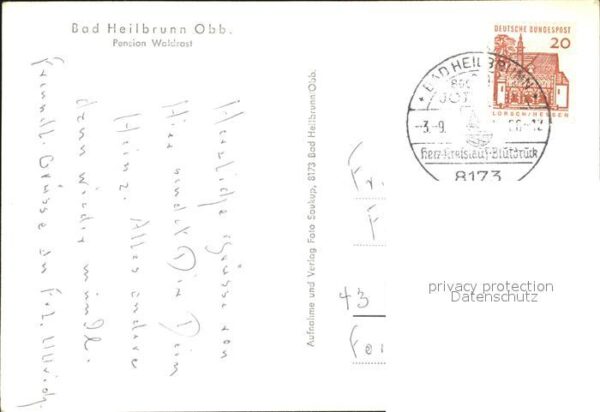 Bad Heilbrunn Obb.
Pension Waldrast
Herzliche Grüsse von
Hier sendet Dir Dein
Heinz. Alles andere
dann wieder mündl.
Freundl. Grüsse an Frl. Ulrich
Aufnahme und Verlag Foto Soukup, 8173 Bad Heilbrunn/Obb.
DEUTSCHE BUNDESPOST
20
LORSCH/HESSEN
BAD HEILBRUNN
-3.-9.
Herz-Kreislauf-Blutdruck
8173
Fr.
F
43
privacy protection
Datenschutz